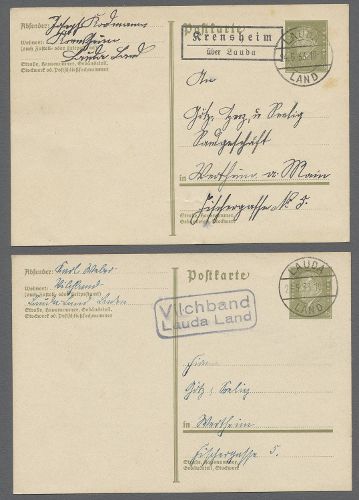 Absender: Joseph Kordmann
Wohnort: Krensheim
(auch Zustell- oder Leitpostamt)
Lauda Land
Straße, Hausnummer, Gebäudeteil,
Stockwerk od. Postschließfachnummer
Postkarte
Krensheim
über Lauda
LAUDA
LAND
An
Götz, und Seelig
in Wertheim a. Main
Fischergasse No 5.
Straße, Hausnummer,
Gebäudeteil, Stockwerk
Absender: Karl
Wohnort: Vilchband
(auch Zustell- oder Leitpostamt)
Lauda Land Baden
Straße, Hausnummer, Gebäudeteil,
Stockwerk od. Postschließfachnummer
Postkarte
Vilchband
Lauda Land
LAUDA
LAND
Götz & Seelig
in Wertheim
Fischergasse 5.
Straße, Hausnummer,
Gebäudeteil, Stockwerk